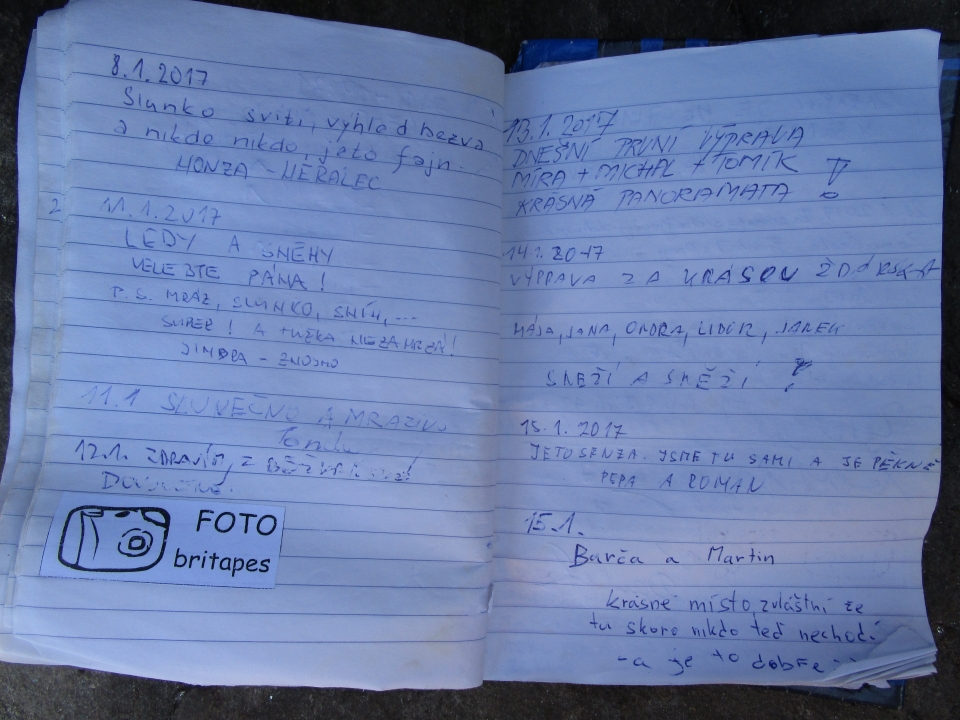 8.1.2017
Slunko svítí, výhled bezva
a nikde nikdo, jeto fajn
HONZA - HERALEC
2
11.1.2017
LEDY A SNĚHY
VELEBTE PÁNA!
P.S. MRÁZ, SLUNKO, SNÍH, ...
SUPER! A TUŽKA NEZAMRZÁ!
JINDRA - ZNOJMO
11.1 SLUNEČNO A MRAZIVO
12.1. ZDRAVÍM, Z
FOTO
britapes
13.1.2017
DNEŠNÍ PRVNÍ VÝPRAVA
MÍRA + MICHAL + TOMÍK
KRÁSNÁ PANORAMATA !
14.1.2017
VÝPRAVA ZA KRÁSOU
MÁJA, JANA, ONDRA, LIBOR, JANEK
SNĚŽÍ A SNĚŽÍ !
15.1.2017
JETO SENZA. JSME TU SAMI A JE PĚKNĚ
PEPA A ROMAN
15.1.
Barča a Martin
krásné místo, zvláštní že
tu skoro nikdo teď nechodí
-a je to dobře